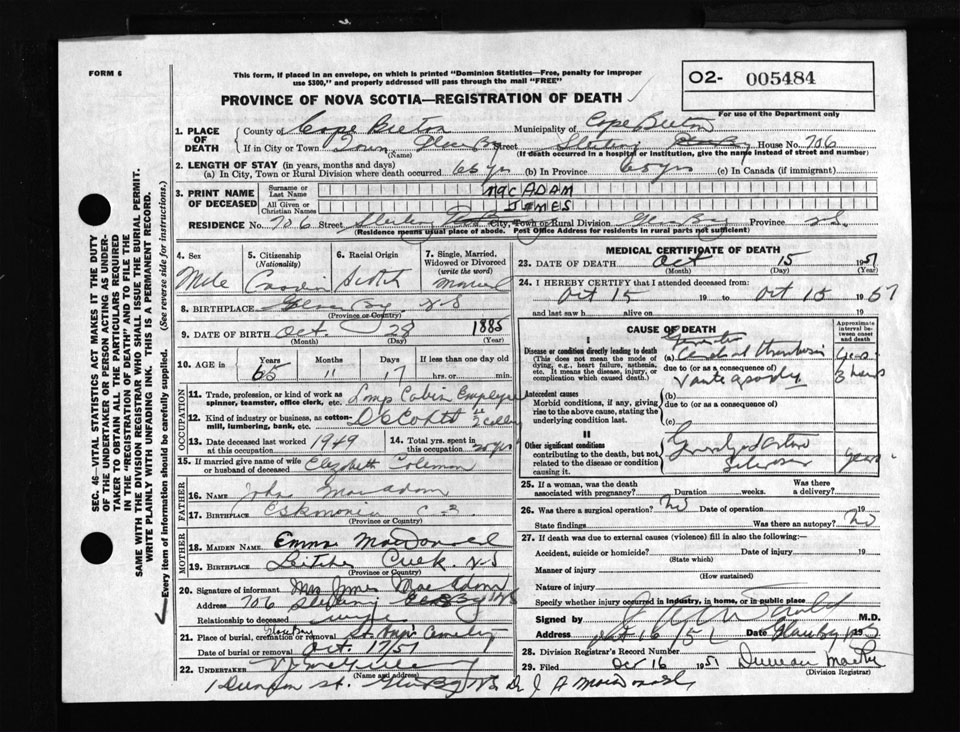 FORM 6
This form, if placed in an envelope, on which is printed "Dominion Statistics—Free, penalty for improper
use $300," and properly addressed will pass through the mail "FREE"
O2- 005484
For use of the Department only
PROVINCE OF NOVA SCOTIA—REGISTRATION OF DEATH
1. PLACE OF DEATH County of Cape Breton Municipality of Cape Breton
If in City or Town Town (Name) Glace Bay Street Sterling House No. 706
(If death occurred in a hospital or institution, give the name instead of street and number)
2. LENGTH OF STAY (in years, months and days)
(a) In City, Town or Rural Division where death occurred 65 yrs (b) In Province 65 yrs (c) In Canada (if immigrant)
3. PRINT NAME OF DECEASED
Surname or Last Name MacADAM
All Given or Christian Names JAMES
RESIDENCE No. 706 Street Sterling City, Town or Rural Division Glace Bay Province N.S.
(Residence means usual place of abode. Post Office Address for residents in rural parts not sufficient)
4. Sex Male
5. Citizenship (Nationality) Canadian
6. Racial Origin Scotch
7. Single, Married, Widowed or Divorced (write the word) Married
8. BIRTHPLACE Glace Bay N S
(Province or Country)
9. DATE OF BIRTH Oct. 28 1885
(Month) (Day)
10. AGE IS Years 65 Months 11 Days 17 If less than one day old
hrs. or min.
OCCUPATION
11. Trade, profession, or kind of work as spinner, teamster, office clerk, etc. Lamp Cabin Employee
12. Kind of industry or business, as cotton-mill, lumbering, bank, etc. Colliery
13. Date deceased last worked at this occupation 1949
14. Total yrs. spent in this occupation
15. If married give name of wife or husband of deceased Elizabeth Coleman
FATHER
16. NAME John MacAdam
17. BIRTHPLACE Eskasonia C.B.
(Province or Country)
MOTHER
18. MAIDEN NAME Emma MacDonald
19. BIRTHPLACE Creek. N S
(Province or Country)
20. Signature of informant Mrs James MacAdam
Address 706 Sterling Glace Bay N S
Relationship to deceased wife
21. Place of burial, cremation or removal Glace Bay Cemetery
Date of burial or removal Oct. 17/51
22. UNDERTAKER
(Name and address)
Glace Bay N.S. Dr J A MacDonald
MEDICAL CERTIFICATE OF DEATH
23. DATE OF DEATH Oct 15 1951
(Month) (Day) (Year)
24. I HEREBY CERTIFY that I attended deceased from:
Oct 15 19 to Oct 15 1951
and last saw h alive on 19
CAUSE OF DEATH
Approximate interval between onset and death
I
Disease or condition directly leading to death
(This does not mean the mode of dying, e.g., heart failure, asthenia, etc. It means the disease, injury, or complication which caused death.
(a) Cerebral thrombosis
due to (or as a consequence of)
3 hours
Antecedent causes
Morbid conditions, if any, giving rise to the above cause, stating the underlying condition last.
(b)
due to (or as a consequence of)
(c)
II
Other significant conditions contributing to the death, but not related to the disease or condition causing it.
years
25. If a woman, was the death associated with pregnancy? Duration weeks. Was there a delivery?
26. Was there a surgical operation? No Date of operation 19
State findings Was there an autopsy? No
27. If death was due to external causes (violence) fill in also the following:
Accident, suicide or homicide? Date of injury 19
(State which)
Manner of injury
(How sustained)
Nature of injury
Specify whether injury occurred in industry, in home, or in public place
Signed by M.D.
Address Oct 16/51 Date Glace Bay N S
28. Division Registrar's Record Number
29. Filed Oct 16 1951 Duncan
(Division Registrar)
SEC. 46—VITAL STATISTICS ACT MAKES IT THE DUTY
OF THE UNDERTAKER OR PERSON ACTING AS UNDER-
TAKER TO OBTAIN ALL THE PARTICULARS REQUIRED
IN THE "REGISTRATION OF DEATH" AND TO FILE THE
SAME WITH THE DIVISION REGISTRAR WHO SHALL ISSUE THE BURIAL PERMIT.
WRITE PLAINLY WITH UNFADING INK. THIS IS A PERMANENT RECORD.
Every item of information should be carefully supplied. (See reverse side for instructions.)